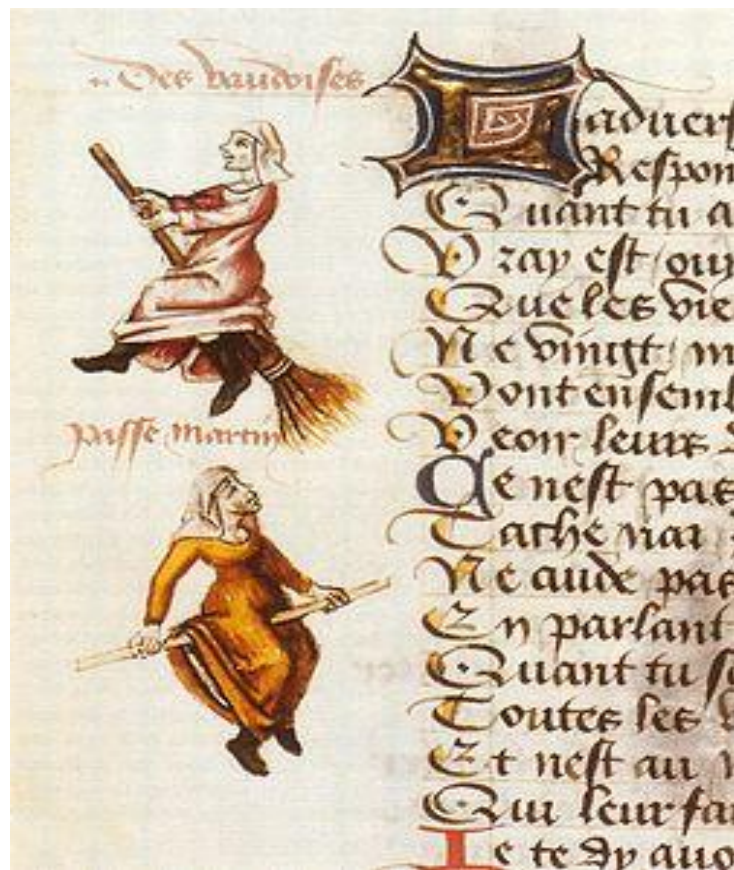 Des vaudoises
passe martin
L aduers
Respon
Quant tu a
Vray est / ouy
Que les vie
Ne vingt / m
Vont ensemb
Veoir leurs
Ce nest pas
Tache nar
Ne cuide pas
En parlant
Quant tu se
Toutes les
Et nest au
Qui leur fai
Ie te dy auo